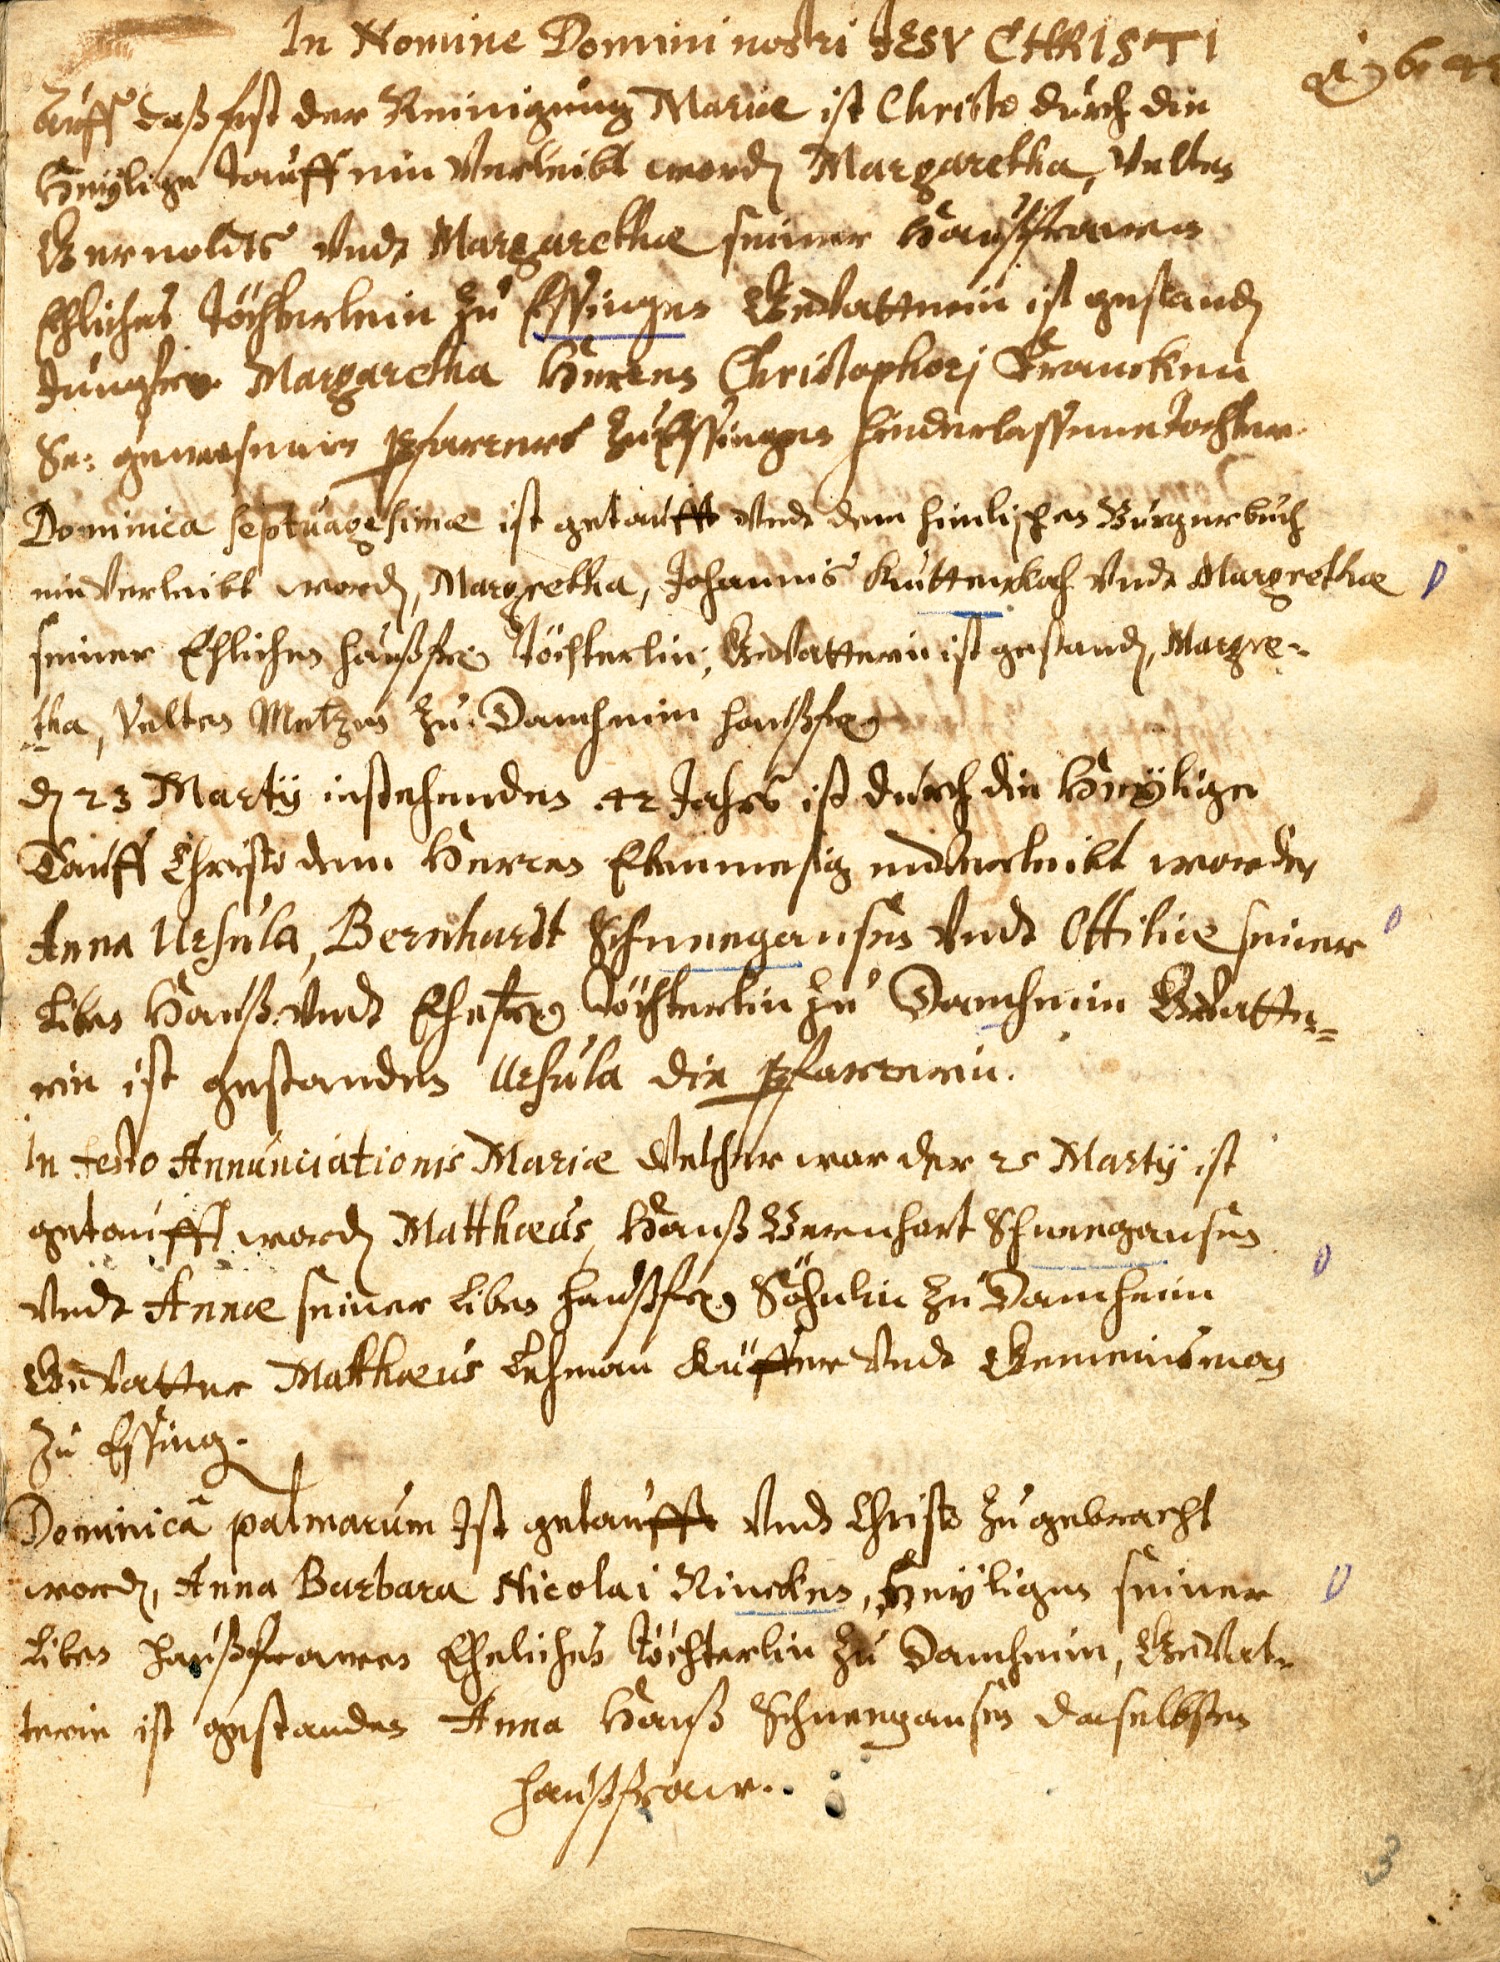 In Nomine Domini nostri JESV CHRISTI
1642
Auff daß fest der Reinigung Mariæ ist Christo durch die
Heÿlige Tauff ein verleibt word Margaretha, Velten
Bernoldts vndt Margarethæ seiner Haußfrawen
Ehliches Töchterlein zu Essingen Gevatterin ist gestand
Jungfr. Margaretha Herren Christophorj Francken
Se: gewesenen Pfarrers zu Essingen hinderlassene tochter.
Dominica septuagesimæ ist getaufft vndt dem himlischen Burgerbuch
ein verleibt word, Margretha, Johannis Kuttenbach vndt Margrethæ
seiner Ehlichen haußfr Töchterlin, Gevatterin ist gestand, Margre-
tha, Velten Metzen zu Damheim haußfr
d 23 Martÿ instehenden 42 Jahrs ist durch die Heÿlige
Tauff Christo dem Herren Ebenmesig einverleibt worden
Anna Ursula, Bernhardt Schneegansen vndt Ottiliæ seiner
Liben Hauß vndt Ehefr Töchterlin zu Damheim Gevatte-
rin ist gestanden Ursula die Pfarrerin.
In festo Annunciationis Mariæ Welcher war der 25 Martÿ ist
getaufft word Matthæus, Hanß Bernhart Schneegansen
vndt Annæ seiner Liben haußfr Söhnlin zu Damheim
Gevatter Matthæus Lehman Küffer vndt Gemeinsman
zu Essing.
Dominicâ palmarum Ist getaufft vndt Christo zu gebracht
word, Anna Barbara Nicolai Rincken, Heÿligen seiner
Liben haußfrawen Eheliches Töchterlin zu Damheim, Gevat-
terin ist gestanden Anna Hanß Schneegansen daselbsten
haußfraw.
3